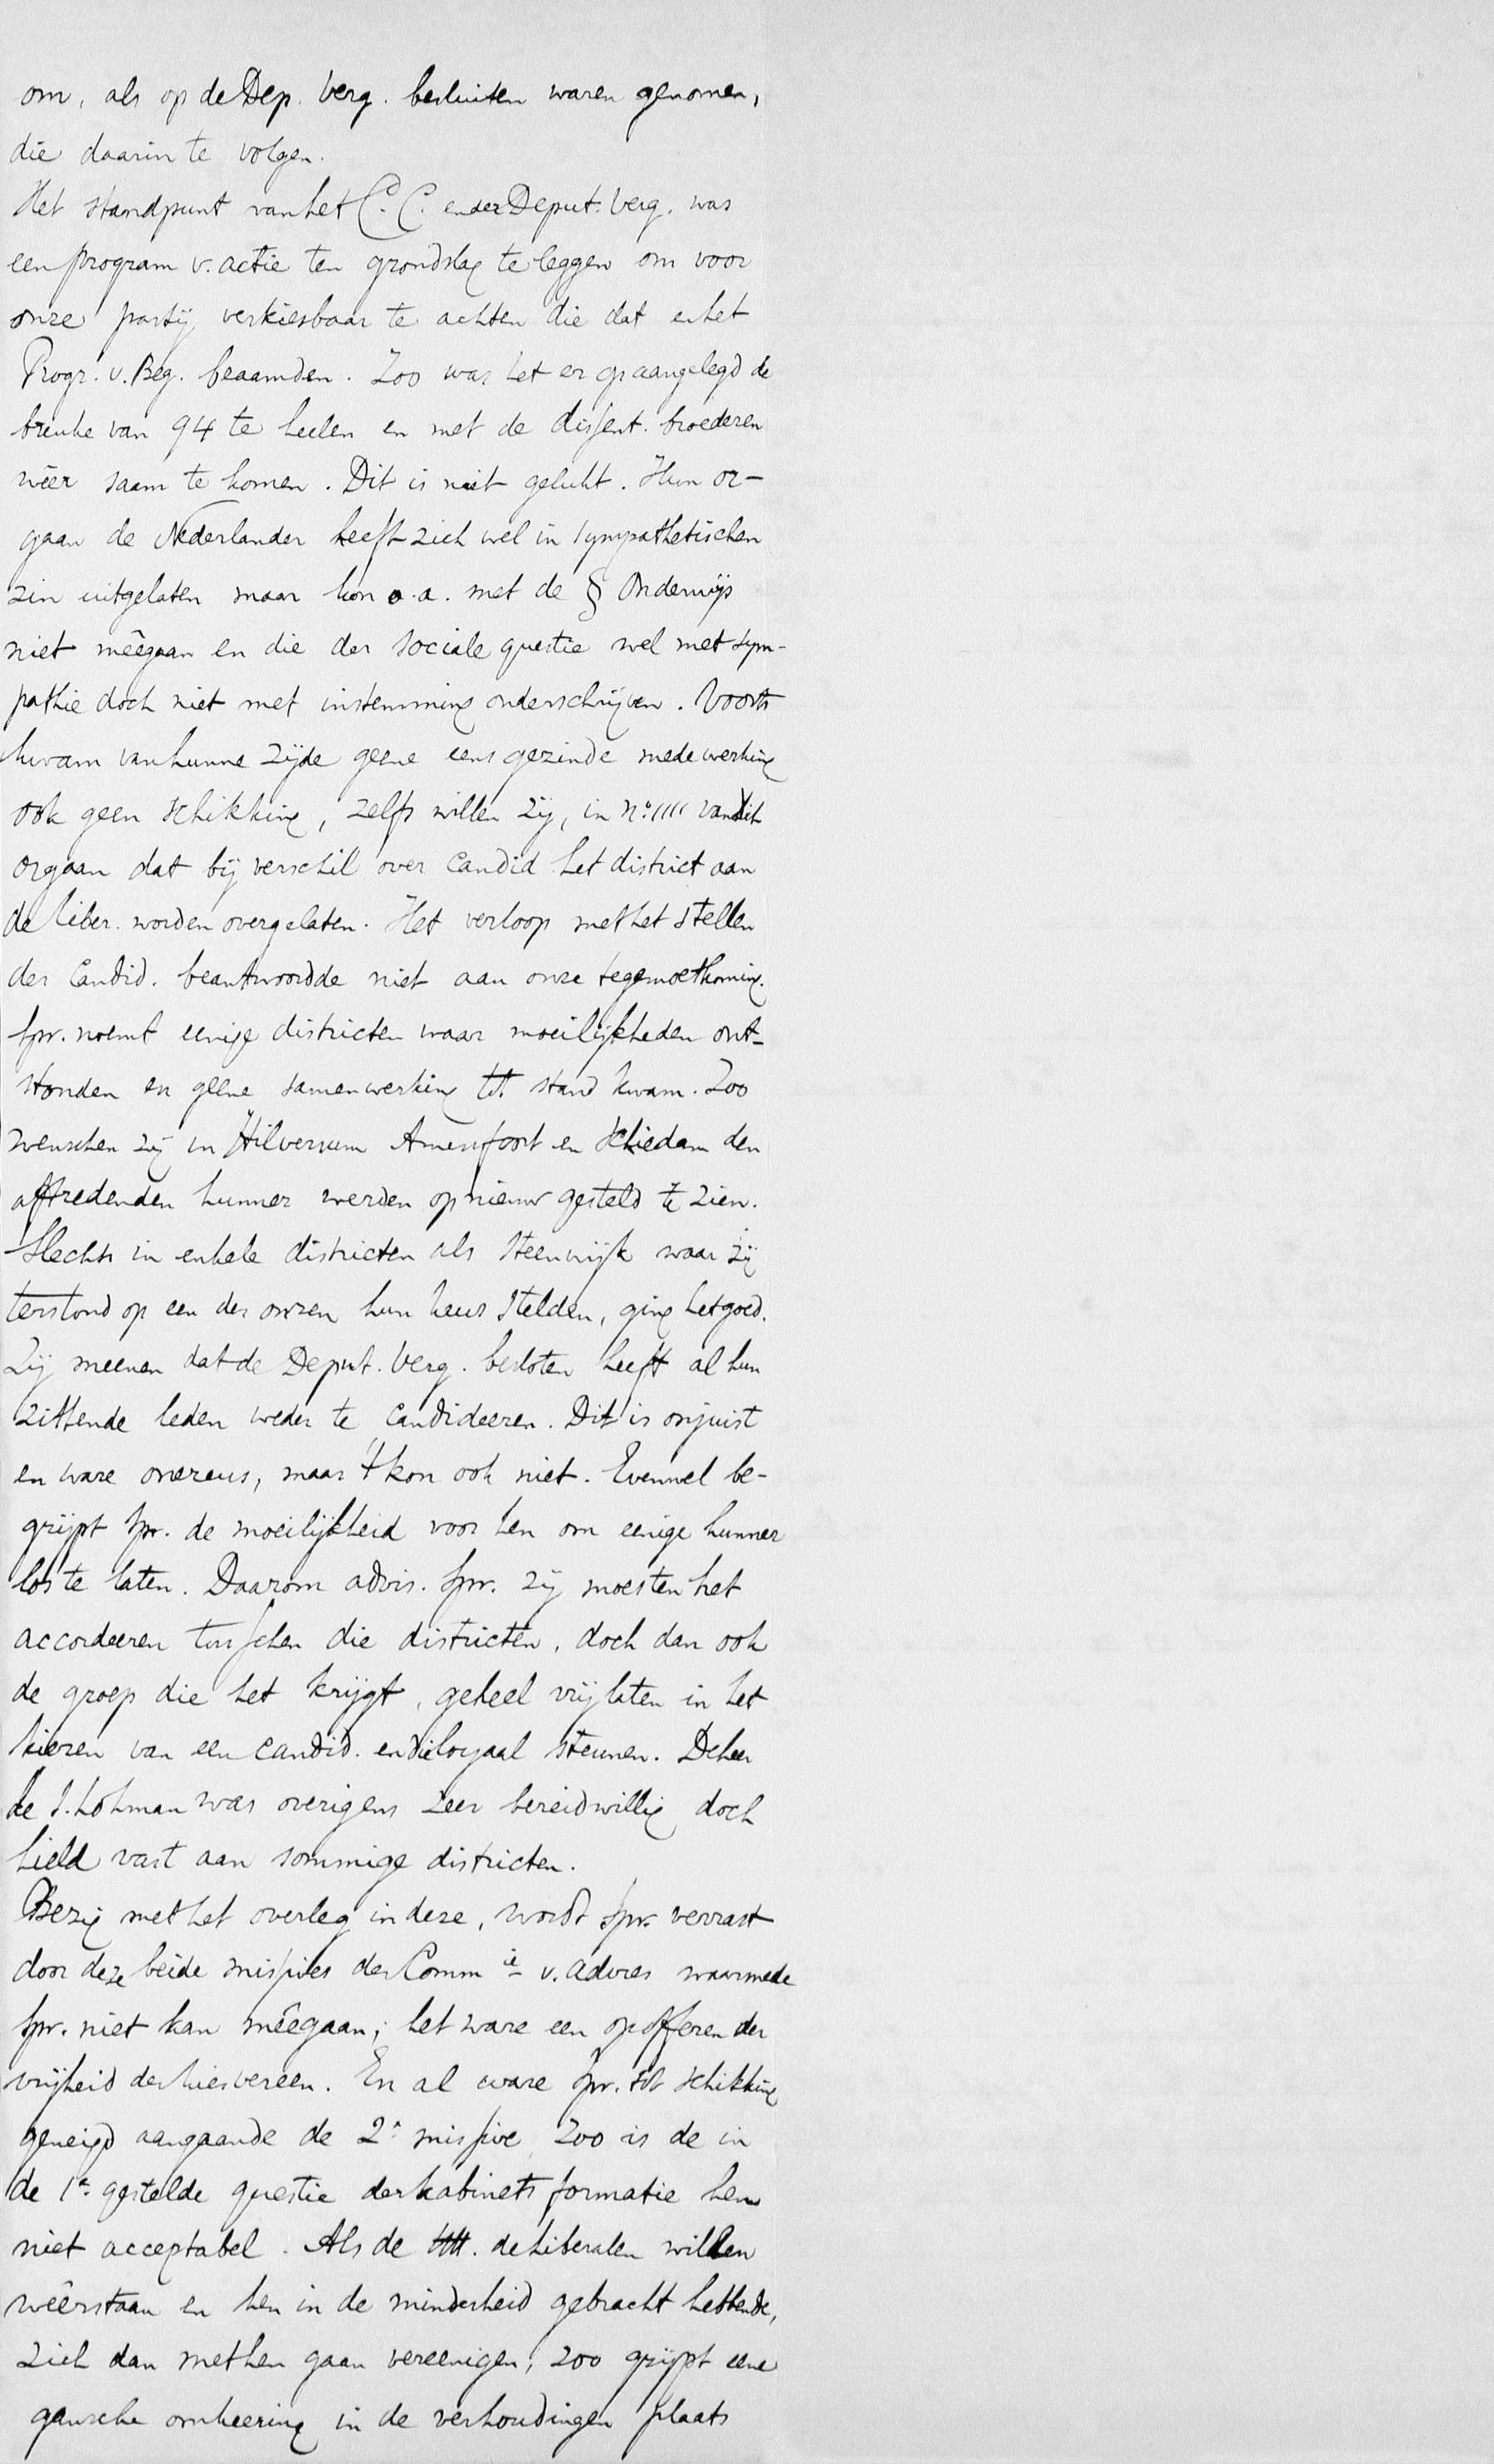 om, als op de Dep. verg. besluiten waren genomen,
die daarin te volgen.
Het standpunt van het C. C. en der Deput. verg. was
een program v. actie ten grondslag te leggen om voor
onze partij verkiesbaar te achten die dat en het
Progr. v. Beg. beaamden. Zoo was het er op aangelegd de
breuke van 94 te heelen en met de dissent. broederen
wêer saam te komen. Dit is niet gelukt. Hun or-
gaan de Nederlander heeft zich wel in sympathetischen
zin uitgelaten maar kon o.a. met de § Onderwijs
niet mêegaan en die der sociale questie wel met sym-
pathie doch niet met instemming onderschrijven. Voorts
kwam van hunne zijde geene eensgezinde medewerking
ook geen schikking, zelfs willen zij, in No. 1111 van dit
orgaan dat bij verschil over Candid het district aan
de liber. worden overgelaten. Het verloop met het stellen
der Candid. beantwoordde niet aan onze tegemoetkoming.
Spr. noemt eenige districten waar moeilijkheden ont-
stonden en geene samenwerking tot stand kwam. Zoo
wenschen zij in Hilversum Amersfoort en Schiedam den
aftredenden hunner werden opnieuw gesteld te zien.
Slechts in enkele districten als Steenwijk waar zij
terstond op een der onzen hun keus stelden, ging het goed.
Zij meenen dat de Deput. Verg. besloten heeft al hun
zittende leden weder te candideeren. Dit is onjuist
en ware onereus, maar 't kon ook niet. Evenwel be-
grijpt Spr. de moeilijkheid voor hen om eenige hunner
los te laten. Daarom advis. Spr. zij moesten het
accordeeren tusschen die districten, doch dan ook
de groep die het krijgt, geheel vrij laten in het
kiezen van een candid. en die loyaal steunen. De heer
de S. Lohman was overigens zeer bereidwillig doch
hield vast aan sommige districten.
Bezig met het overleg in deze, wordt Spr. verrast
door deze beide missives der Comm ie v. advies waarmede
Spr. niet kan mêegaan; het ware een opofferen der
vrijheid der kiesvereen. En al ware Spr. tot schikking
geneigd aangaande de 2e missive Zoo is de in
de 1e gestelde questie der kabinets formatie hem
niet acceptabel. Als de HH. de liberalen willen
wêerstaan en hen in de minderheid gebracht hebbende,
zich dan met hen gaan vereenigen, zoo grijpt eene
gansche omkeering in de verhoudingen plaats